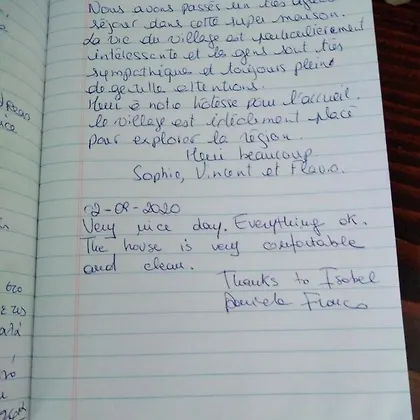 Nous avons passés un très
séjour dans cette super maison.
La vie du village est particulièrement
intéressante et le gens sont très
sympathiques et toujours plein
de gentille attentions.
Merci à notre hôtesse pour l'accueil.
Le village est idéalement placé
pour explorer la région.
Merci beaucoup
Sophie, Vincent et
02-09-2020
Very nice day. Everything ok.
The house is very comfortable
and clean.
Thanks to Isabel
Daniela